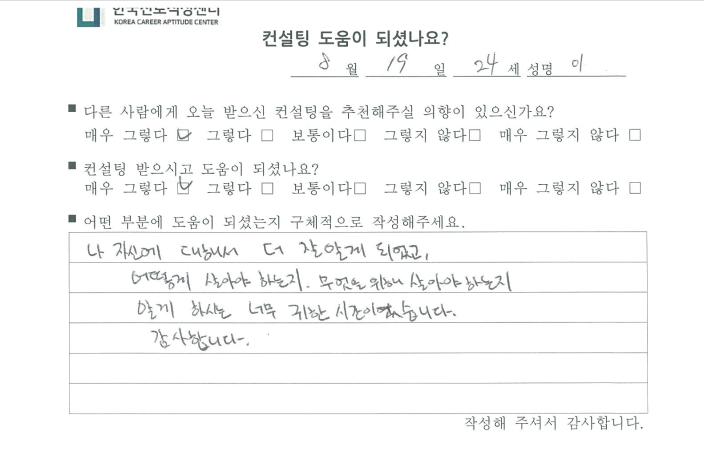 한국진로적성센터
KOREA CAREER APTITUDE CENTER
컨설팅 도움이 되셨나요?
8 월 19 일 24 세 성명 이
■ 다른 사람에게 오늘 받으신 컨설팅을 추천해주실 의향이 있으신가요?
매우 그렇다 ☑ 그렇다 □ 보통이다□ 그렇지 않다□ 매우 그렇지 않다 □
■ 컨설팅 받으시고 도움이 되셨나요?
매우 그렇다 ☑ 그렇다 □ 보통이다□ 그렇지 않다□ 매우 그렇지 않다 □
■ 어떤 부분에 도움이 되셨는지 구체적으로 작성해주세요.
나 자신에 대해서 더 잘알게 되었고,
어떻게 살아야 하는지. 무엇을 위해 살아야 하는지
알게 하시는 너무 귀한 시간이였습니다.
감사합니다.
작성해 주셔서 감사합니다.